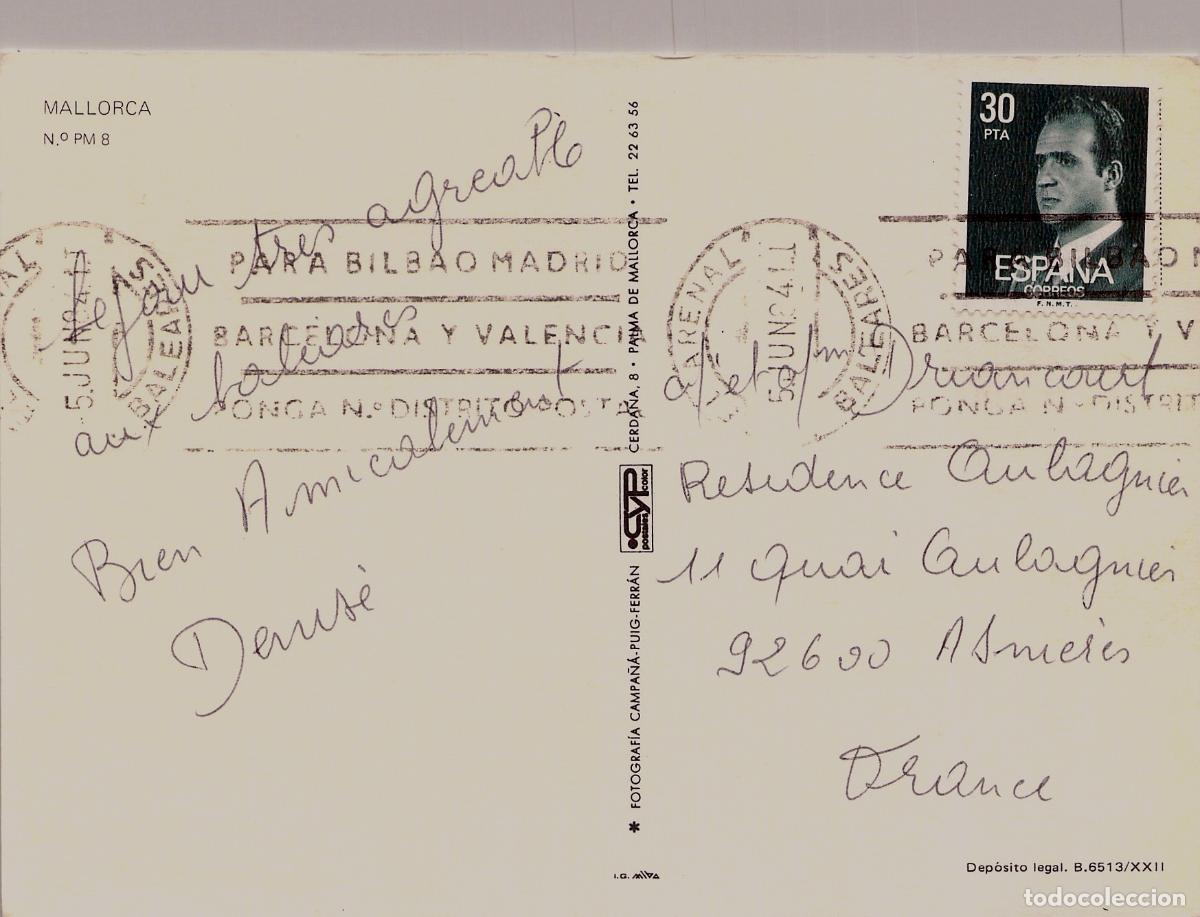 MALLORCA
N.º PM 8
Sejour tres agreable
aux baleares
Bien Amicalement
Denise
ARENAL
5 JUN 84
BALEARES
PARA BILBAO MADRID
BARCELONA Y VALENCIA
PONGA N.º DISTRITO POSTAL
✱ FOTOGRAFÍA CAMPAÑÁ-PUIG-FERRÁN
CYP
postales color
CERDAÑA, 8 • PALMA DE MALLORCA • TEL. 22 63 56
I.G.
30
PTA
ESPAÑA
CORREOS
F.N.M.T.
ARENAL
5 JUN 84
BALEARES
PARA BILBAO M
BARCELONA Y V
PONGA N.º DISTRIT
Driancourt
Residence Aulagnier
11 quai Aulagnier
92600 Asnieres
France
Depósito legal. B.6513/XXII
todocoleccion